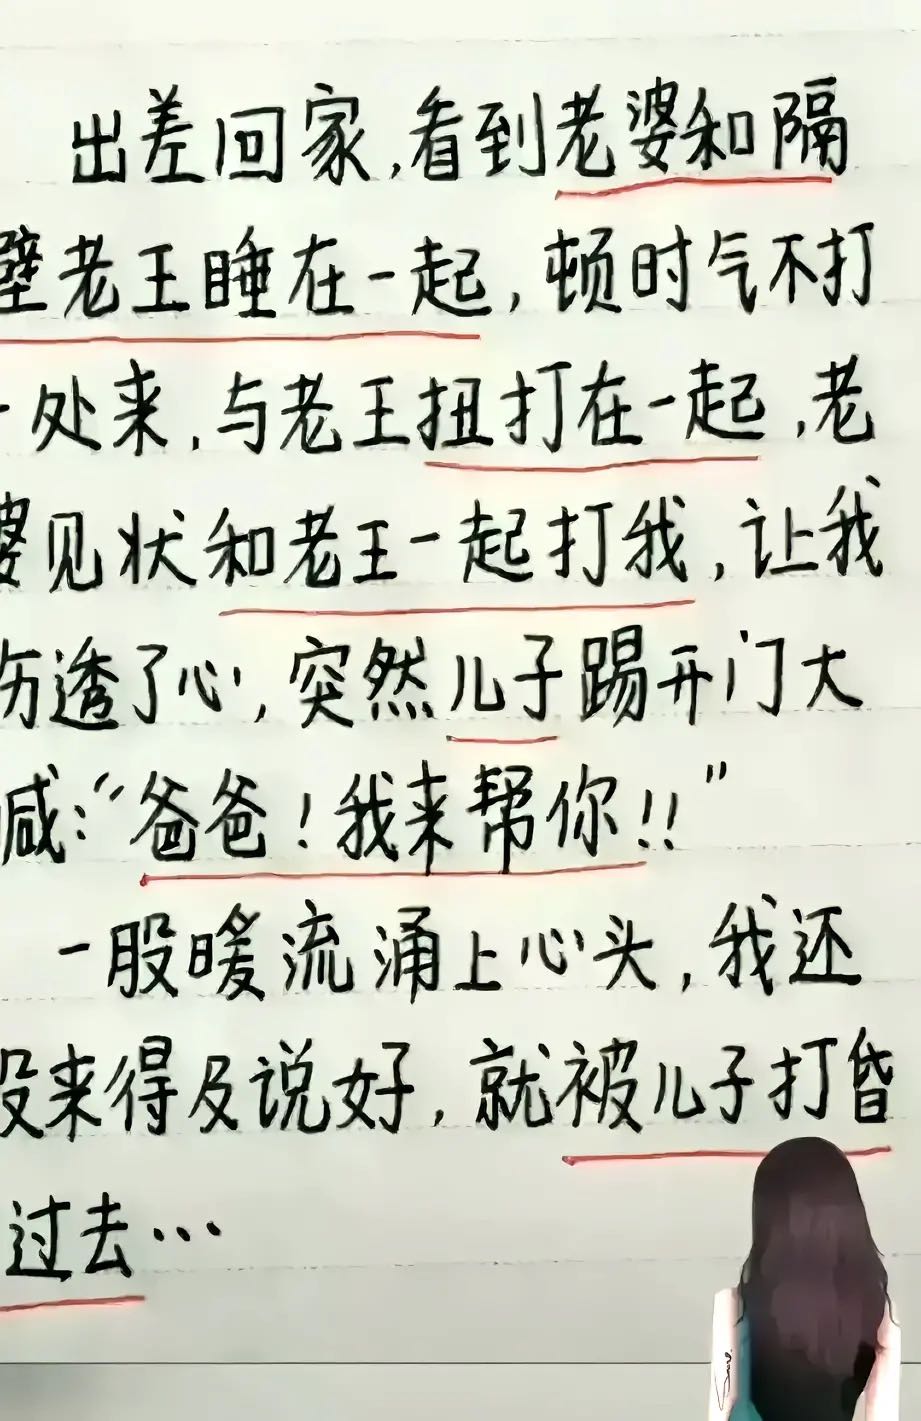 出差回家,看到老婆和隔
壁老王睡在一起,顿时气不打
一处来,与老王扭打在一起,老
婆见状和老王一起打我,让我
伤透了心,突然儿子踢开门大
喊:“爸爸!我来帮你!!”
一股暖流涌上心头,我还
没来得及说好,就被儿子打昏
过去…